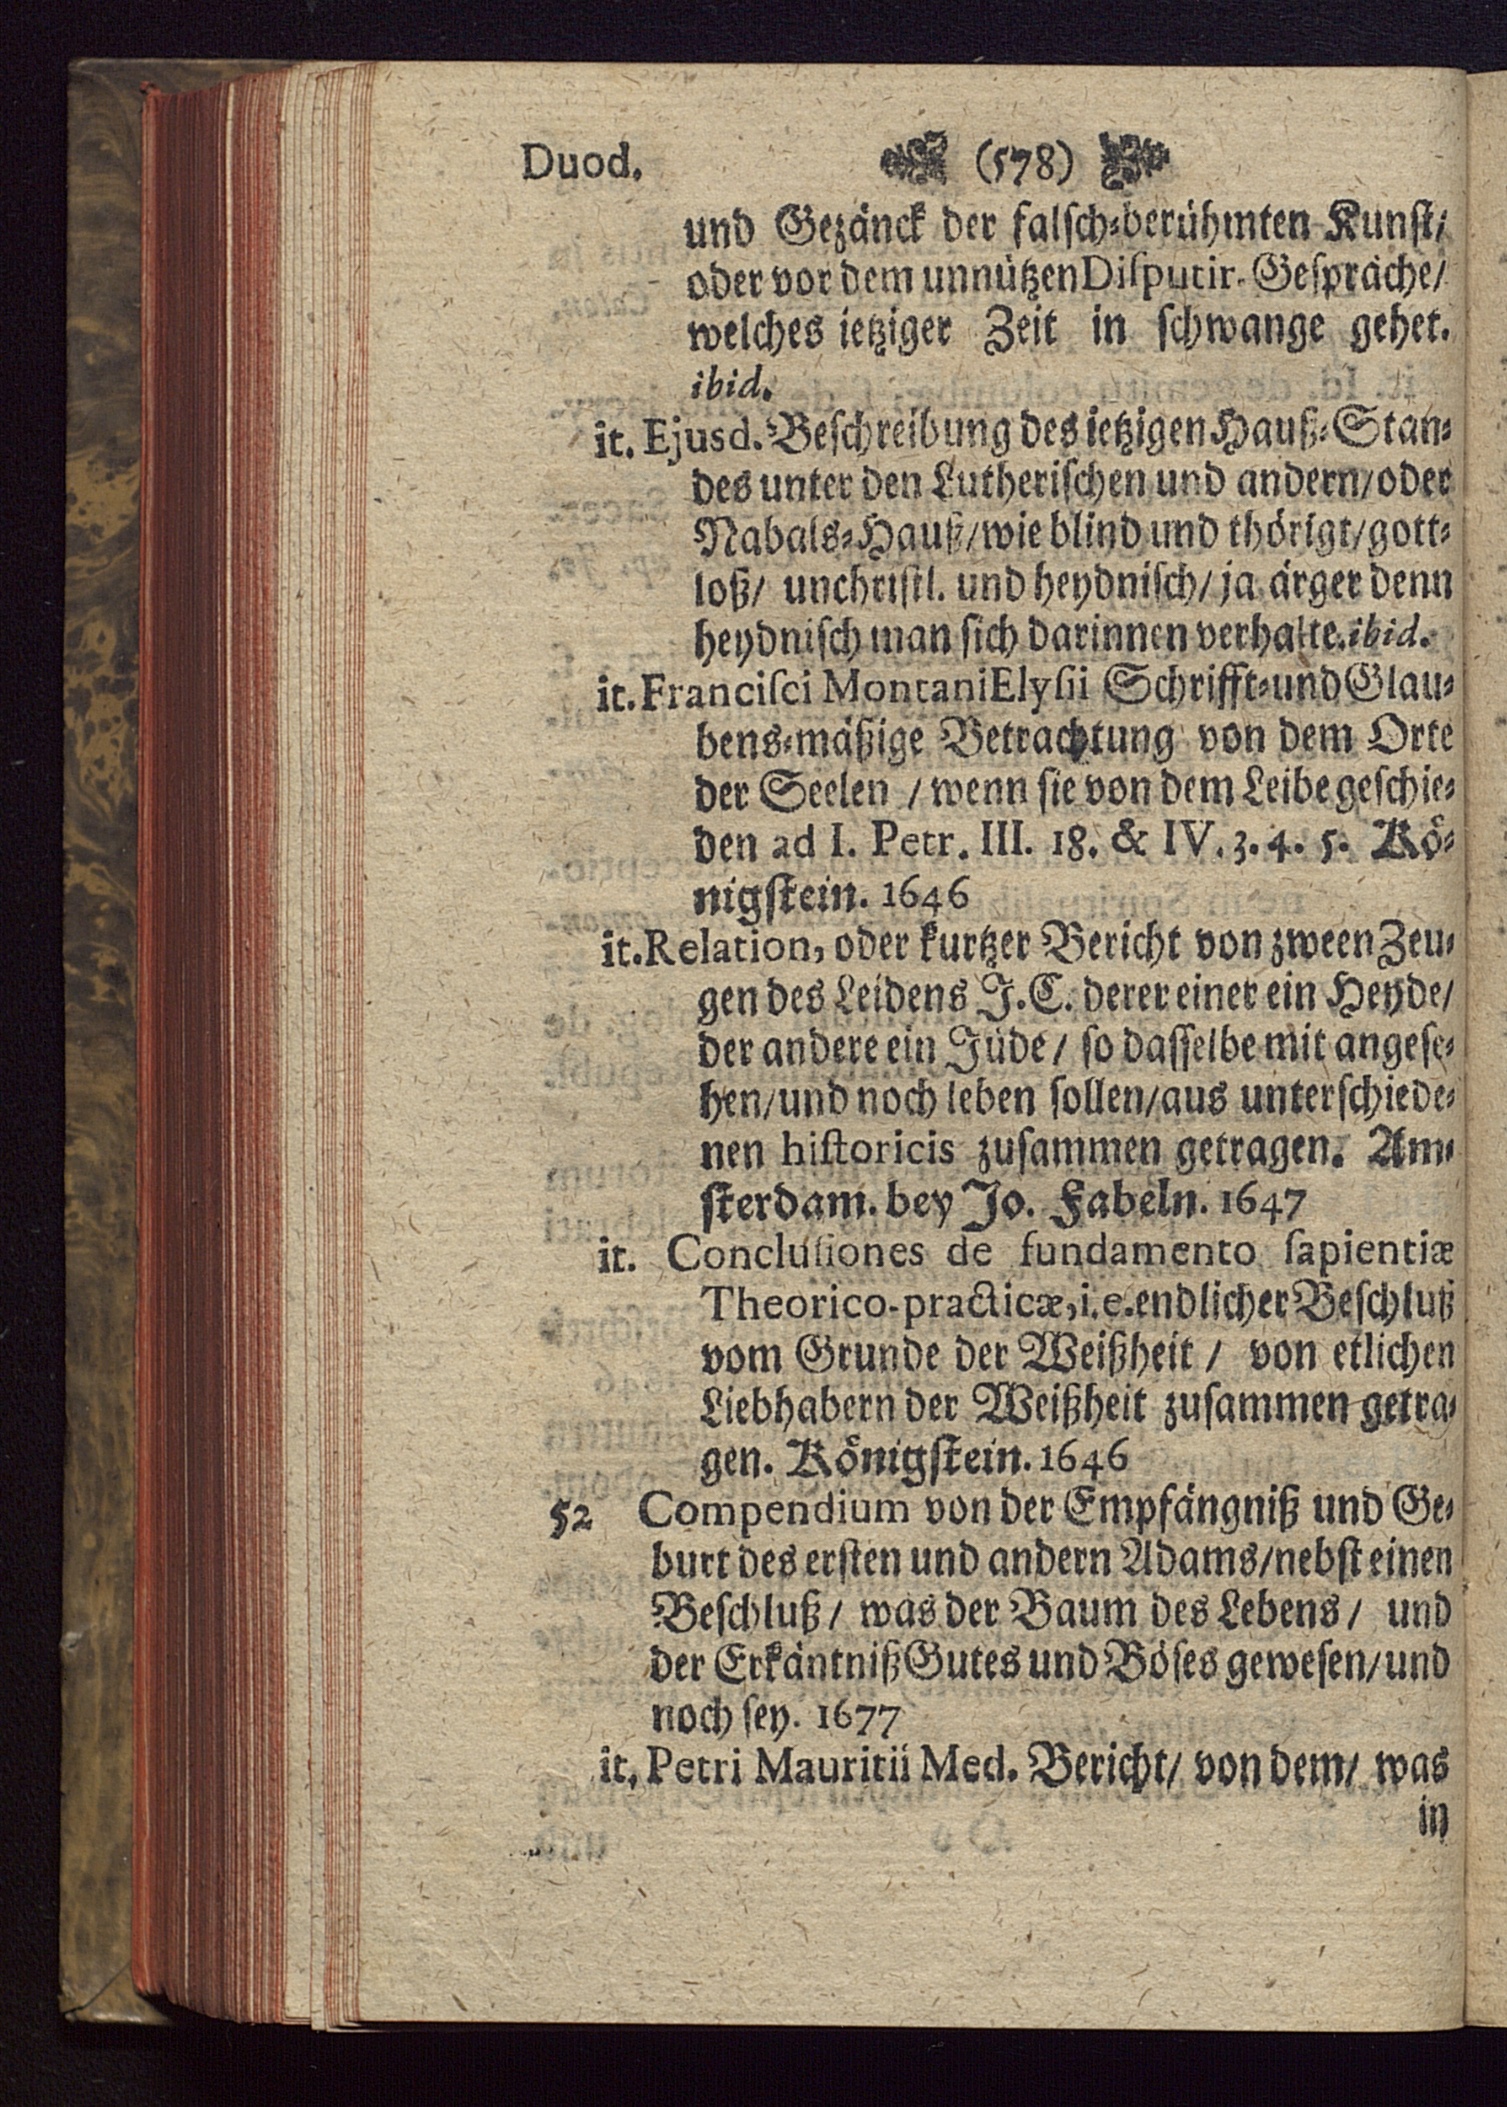 Duod. (578)
und Gezänck der falsch-berühmten Kunst/
oder vor dem unnützen Disputir-Gespräche/
welches ietziger Zeit in schwange gehet.
ibid.
it. Ejusd. Beschreibung des ietzigen Hauß-Stan-
des unter den Lutherischen und andern/oder
Nabals-Hauß/wie blind und thörigt/gott-
loß/ unchristl. und heydnisch/ ja ärger denn
heydnisch man sich darinnen verhalte. ibid.
it. Francisci Montani Elysii Schrifft-und Glau-
bens-mäßige Betrachtung von dem Orte
der Seelen / wenn sie von dem Leibe geschie-
den ad I. Petr. III. 18. & IV. 3. 4. 5. Kö-
nigstein. 1646
it. Relation, oder kurtzer Bericht von zween Zeu-
gen des Leidens J. C. derer einer ein Heyde/
der andere ein Jüde / so dasselbe mit angese-
hen/und noch leben sollen/aus unterschiede-
nen historicis zusammen getragen. Am-
sterdam. bey Jo. Fabeln. 1647
it. Conclusiones de fundamento sapientiæ
Theorico-practicæ, i. e. endlicher Beschluß
vom Grunde der Weißheit / von etlichen
Liebhabern der Weißheit zusammen getra-
gen. Königstein. 1646
52 Compendium von der Empfängniß und Ge-
burt des ersten und andern Adams/nebst einen
Beschluß / was der Baum des Lebens / und
der Erkäntniß Gutes und Böses gewesen/und
noch sey. 1677
it, Petri Mauritii Med. Bericht/ von dem/ was
in